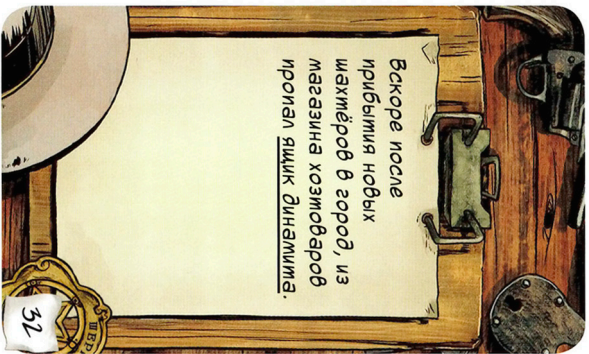 Вскоре после
прибытия новых
шахтёров в город, из
магазина хозтоваров
пропал ящик динамита.
ШЕР
32